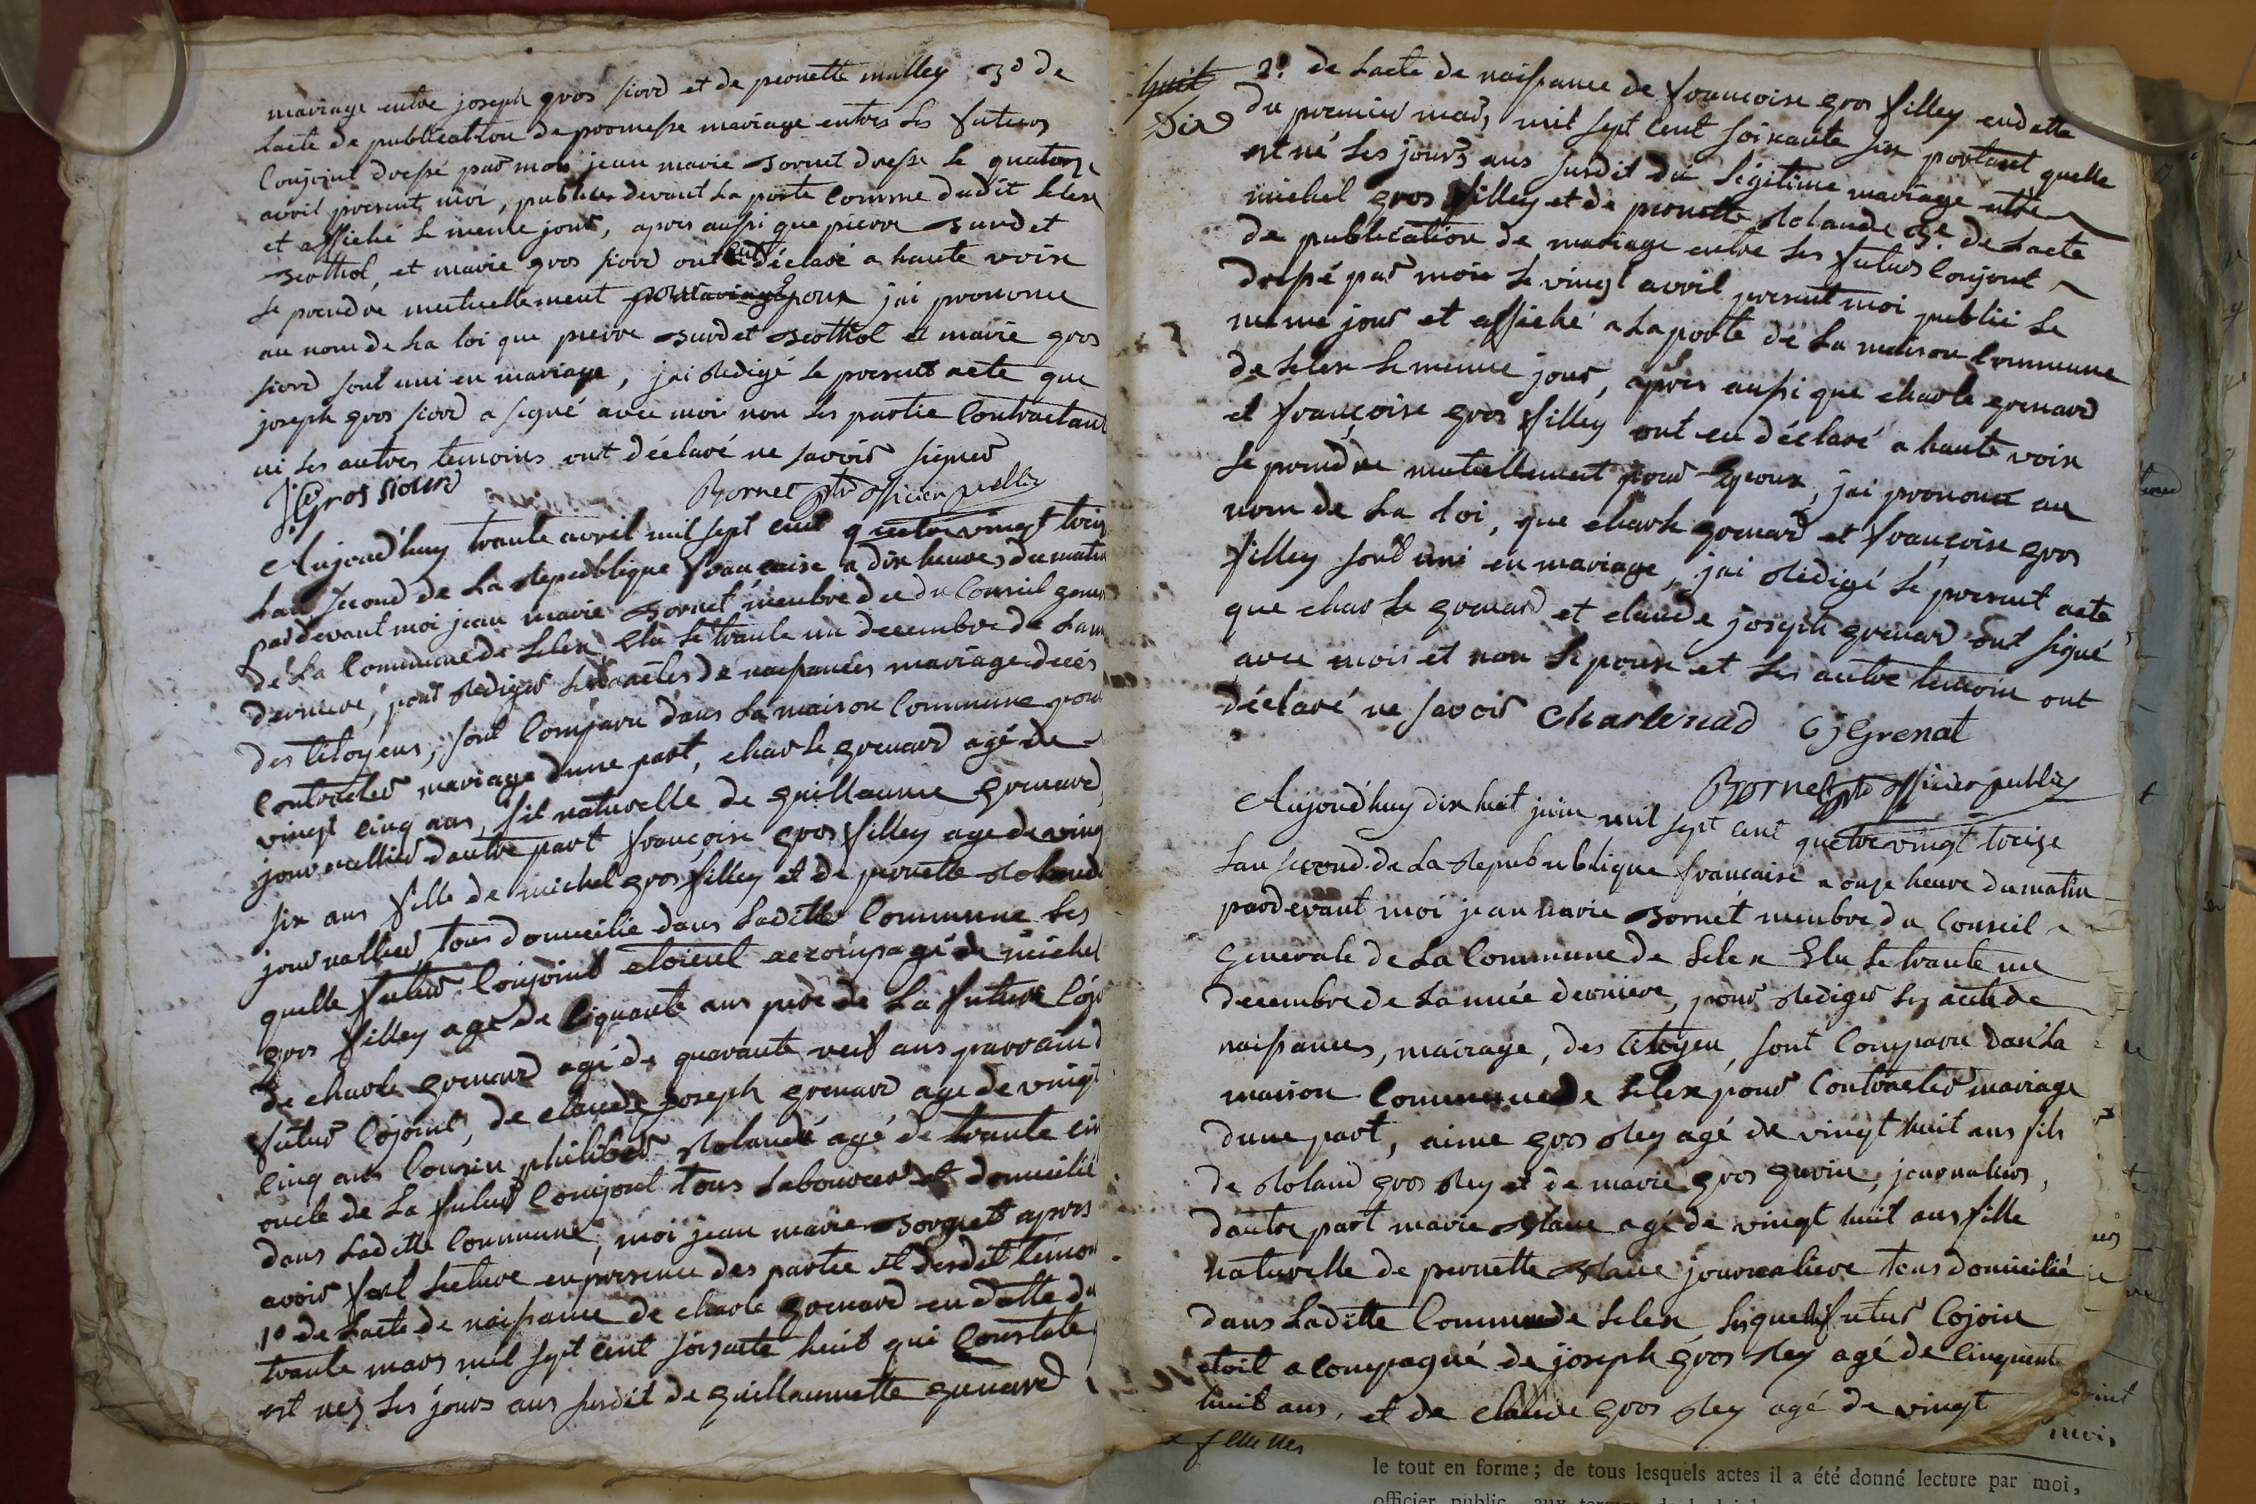 mariage entre joseph gros siord et de peronette malley 3° de
Lacte de publication de promesse mariage entres Les futurs
Conjoint dressé par moi jean marie Bornet dresse le quatorze
avril present moi, publice devant La porte Comme dudit Selex
et affiché le meme jour, apres aussi que pierre Burdet
Beothol, et marie gros siord ont eut déclaré a haute voix
se prendre mutuellement pour Epoux jai prononce
au nom de La loi que pierre Burdet Beothol et marie gros
siord sont uni en mariage, jai Redigé le present acte que
joseph gros siord a signé avec moi non Les partie Contractant
ni Les autres temoins ont déclaré ne savoir signer
J Gros siourd
Bornet officier public
Aujourd'huy trante avril mil sept cent quatre vingt treize
Lan second de La Republique francaise a dix heures du matin
pardevant moi jean marie Bornet membre du du Conseil gener
de La Commune de Selex Elu le trante un decembre de Lann
derniere, pour Rediger les actes de naissances mariage deces
des Citoyens, sont Comparu dans La maison Commune pour
Contracter mariage dune part, charle grenard agé de
vingt cinq ans, fil naturelle de guillaume grenard
journallier dautre part françoise gros filley age de vingt
six ans fille de michel gros filley et de peronette Rolande
journallier, tous domicilie dans Ladette Commune Les
quelle futur Conjoint etoient accompagé de michel
gros filley age de Ciquante ans pere de La future Cojo
de charle grenard agé de quarante neuf ans parrain d
futur Cojoint, de claude joseph grenard age de vingt
Cinq ans Cousin philiber Rolande agé de trante cin
oncle de La futur Conjont tous Laboureur et domicilié
dans Ladette Commune, moi jean marie Bornet apres
avoir fait Lecture en presence des partie et desdit temon
1° de Lacte de naissance de charle grenard en datte du
trante mars mil sept cent soisante huit qui Constate
est nez Les jours ans susdit de guillaumette genard
huit
Dix
2° de Lacte de naissance de francoise gros filley endatte
du premier mars mil sept cent soixante six portant quelle
est né Les jours ans susdit du Légitime mariage entre
michel gros filley et de peronette Rolande 3e de Lacte
de publication de mariage entre Les futurs Conjont
dressé par moi le vingt avril present moi publié le
meme jour et affiché a La porte de La maison Commune
de Selex le meme jour, apres aussi que charle grenard
et françoise gros filley ont eu déclaré a haute voix
se prendre mutuellement pour Epoux, jai prononcé au
nom de La loi, que charle grenard et françoise gros
filley sont uni en mariage, jai Redigé le present acte
que charle grenard et claude joseph grenard ont signé
avec mois et non Lepouse et Les autre temoin ont
déclaré ne savoir Charlenad CJ Grenat
Bornet officier public
Aujourd'huy dix huit juin mil sept cent quatre vingt treize
Lan second de La Repubublique francaise a onze heure du matin
pardevant moi jean marie Bornet membre du Conseil
Generale de La Commune de Selex Elu le trante un
decembre de Lannée derniere, pour Rediger Les acte de
naissances, mairage, des Citoyen, sont Comparu dans La
maison Commune de Selex pour Contracter mariage
dune part, aime gros Rey agé de vingt huit ans fils
de Roland gros Rey et de marie gros gurin, journaliers,
dautre part marie Blanc agé de vingt huit ans fille
naturelle de peronette Blanc journaliere tous domicilié
dans Ladette Commune de Selex Lesquelle futur Cojoin
etoit acompagné de joseph gros Rey agé de Cinquent
huit ans, et de claude gros Rey agé de vingt
le tout en forme; de tous lesquels actes il a été donné lecture par moi,